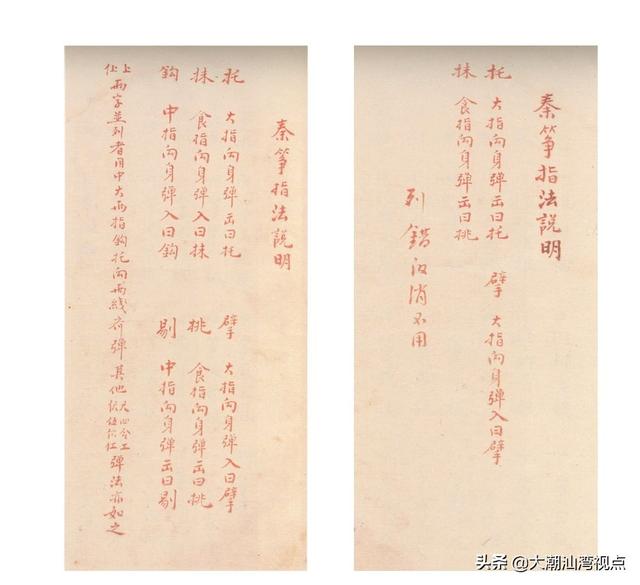 秦箏指法說明
托 大指向身彈出曰托 擘 大指向身彈入曰擘
抹 食指向身彈出曰挑
列錯取消不用
秦箏指法說明
托 大指向身彈出曰托 擘 大指向身彈入曰擘
抹 食指向身彈入曰抹 挑 食指向身彈出曰挑
鈎 中指向身彈入曰鈎 剔 中指向身彈出曰剔
上仩 兩字並列者用中大兩指鈎托向兩綫齊彈其他尺四合工 彈法亦如之
头条 @大潮汕湾视点